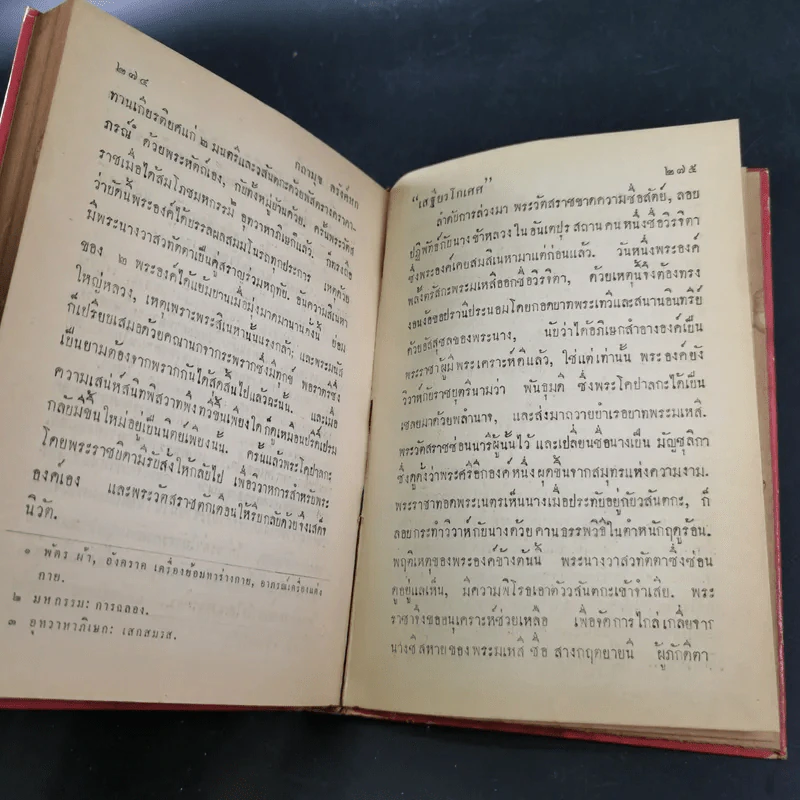 ๒๗๔
กถามุข ตรังค์หก
ทานเกียรติยศแก่ ๒ มนตรีและวสันตกะด้วยพัสตรางคราคา-
ภรณ์ ด้วยพระหัตถ์เอง, กับทั้งหมู่บ้านด้วย. ครั้นพระวัตส
ราชเมื่อได้สมโภชมหกรรม ๒ อุทวาหาภิเษกแล้ว. ก็ทรงถือ
ว่าบัดนี้พระองค์ได้บรรลุผลสมมโนรถทุกประการ เหตุด้วย
มีพระนางวาสวทัตตาเป็นคู่สราญร่วมหฤทัย. อันความสิเนหา
ของ ๒ พระองค์ได้แย้มบานเมื่อมุ่งมาดมานานดังนี้ ย่อม
ใหญ่หลวง, เหตุเพราะพระสิเนหานั้นแรงกล้า; และพระมนัส
ก็เปรียบเสมอด้วยคณานกจากระพรากซึ่งมีทุกข์ พอราตรีซึ่ง
เป็นยามต้องจากพรากกันได้สุดสิ้นไปแล้วฉะนั้น. และเมื่อ
ความเสน่ห์สนิทพิสวาทพึ่งทวีขึ้นเพียงใด ก็ดูเหมือนปรีดิ์เปรม
กลับมีขึ้นใหม่อยู่เป็นนิตย์เพียงนั้น. ครั้นแล้วพระโคปาลกะ
โดยพระราชบิดามีรับสั่งให้กลับไป เพื่อวิวาหการสำหรับพระ
องค์เอง และพระวัตสราชตักเตือนให้รีบกลับด้วย จึงเสด็จ
นิวัต.
๑ พัตร ผ้า, อังคราค เครื่องย้อมทาร่างกาย, อาภรณ์เครื่องแต่ง
กาย.
๒ มหกรรม: การฉลอง.
๓ อุทวาหาภิเษก: เสกสมรส.
๒๗๕
"เสฐียรโกเศศ"
ลำดับการล่วงมา พระวัตสราชขาดความซื่อสัตย์, ลอบ
ปฏิพัทธ์กับนางข้าหลวงในอันเตปุรสถานคนหนึ่งชื่อวิรจิตา
ซึ่งพระองค์เคยสมสิเนหามาแต่ก่อนแล้ว. วันหนึ่งพระองค์
พลั้งตรัสกะพระมเหสีออกชื่อวิรจิตา, ด้วยเหตุนี้จึงต้องทรง
งอนง้อขอปรานีประนอมโดยกอดบาทพระเทวีและสนานอินทรีย์
ด้วยอัสสุชลของพระนาง, นับว่าได้ภิเษกสำอางองค์เป็น
พระราชาผู้มีพระเคราะห์ดีแล้ว, ใช่แต่เท่านั้น พระองค์ยัง
วิวาห์กับราชบุตรีนามว่า พันธุมดี ซึ่งพระโคปาลกะได้เป็น
เชลยมาด้วยพลำนาจ, และส่งมาถวายบำเรอบาทพระมเหสี.
พระวัตสราชซ่อนนารีผู้นั้นไว้ และเปลี่ยนชื่อนางเป็น มัญชุลิกา
ซึ่งดูดั่งว่าพระศรีอีกองค์หนึ่งผุดขึ้นจากสมุทรแห่งความงาม.
พระราชาทอดพระเนตรเห็นนางเมื่อประทับอยู่กับวสันตกะ, ก็
ลอบกระทำวิวาห์กับนางด้วยคานธรรพวิธีในตำหนักฤดูร้อน.
พฤติเหตุของพระองค์ข้างต้นนี้ พระนางวาสวทัตตาซึ่งซ่อน
ดูอยู่แลเห็น, มีความพิโรธเอาตัววสันตกะเข้าจำเสีย. พระ
ราชาจึงขออนุเคราะห์ช่วยเหลือ เพื่อจัดการไกล่เกลี่ยจาก
นางซึ่งสหายของพระมเหสี ชื่อ สางกฤตยายนี ผู้ภักดีตา